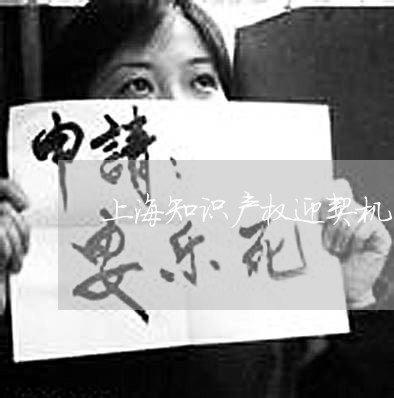 申請：
上海知识产权迎契机
要乐死